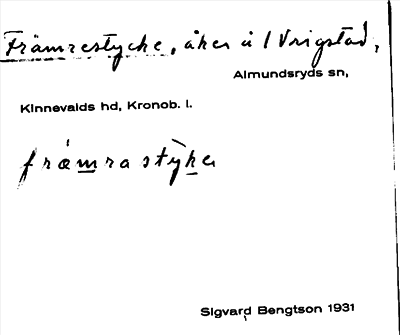 Främrestycke, åker å 1 Vrigstad,
Almundsryds sn,
Kinnevalds hd, Kronob. l.
fræmra stỳka
Sigvard Bengtson 1931